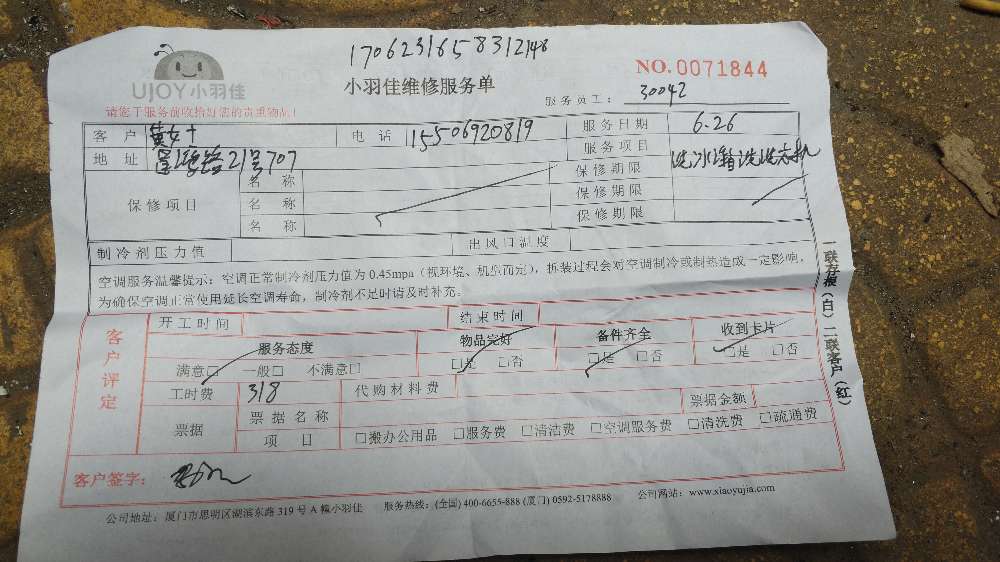 1706231658312148
UJOY小羽佳
小羽佳维修服务单
NO.0071844
请您于服务前收拾好您的贵重物品！
服务员工： 30042
客 户 黄女士 电 话 15506920819 服务日期 6.26
地 址 路21号707 服务项目 洗冰箱洗洗衣机
保修项目
名 称 保修期限
名 称 保修期限
名 称 保修期限
制冷剂压力值 出风口温度
空调服务温馨提示：空调正常制冷剂压力值为0.45mpa（视环境、机型而定），拆装过程会对空调制冷或制热造成一定影响，
为确保空调正常使用延长空调寿命，制冷剂不足时请及时补充。
客户评定
开工时间 结束时间
服务态度 物品完好 备件齐全 收到卡片
满意□ 一般□ 不满意□ □是 □否 □是 □否 □是 □否
工时费 318 代购材料费
票据 票据名称 票据金额
项 目 □搬办公用品 □服务费 □清洁费 □空调服务费 □清洗费 □疏通费
客户签字：
公司地址：厦门市思明区湖滨东路319号A幢小羽佳 服务热线：(全国) 400-6655-888 (厦门) 0592-5178888 公司网站：www.xiaoyujia.com
一联存根（白）二联客户（红）